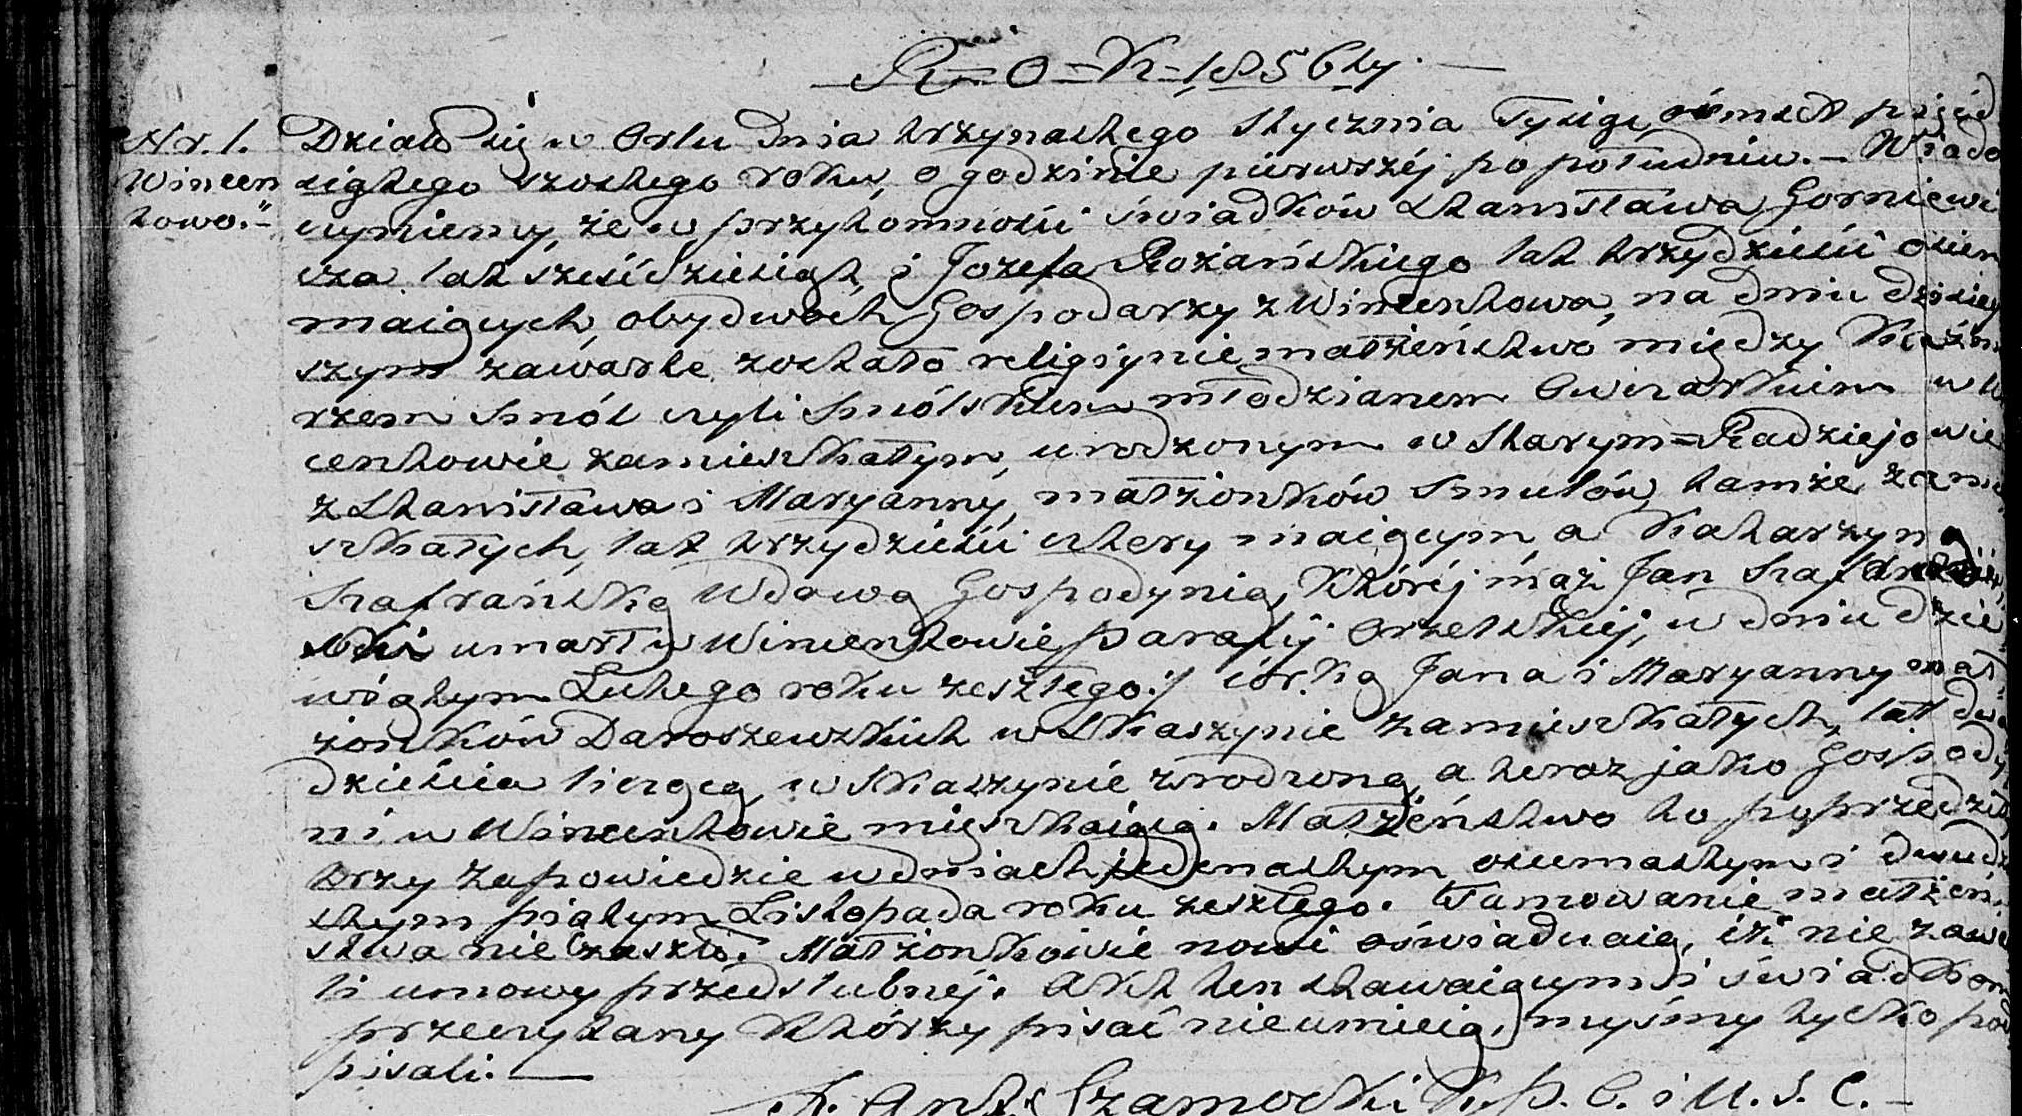 R=O=K=1856ty.
Nr. 1. Działo się w Orlu dnia trzynastego Stycznia Tysiąc ośmset pięćd
Wincen sigtego szostego roku, o godzinie pierwszéj po południu. – Wiado
towo."– czyniemy, że w przytomności świadków Stanisława Gorniewi
cza lat sześćdziesiąt, i Jozefa Rożańskiego lat trzydzieści osiem
maiących, obydwóch Gospodarzy z Wincentowa, na dniu dzisiey
szym zawarte zostało religiynie małżeństwo między Kaźmi
rzem Smól czyli Smólskim młodzianem Owczarkiem w W
centowie zamieszkałym, urodzonym w Starym=Radziejowie
z Stanisława i Maryanny, małżonków Smulów, tamże zamie
szkałych, lat trzydzieści cztery maiącym, a Katarzyną
Szafrańską Wdową Gospodynią, Któréj mąż Jan Szafrań
ski umarł w Wincentowie parafij Orzelskiej, w dniu dzie
wiątym Lutego roku zeszłego:/ córką Jana i Maryanny mał
żonków Daroszewskich w Skaszynie zamieszkałych, lat dwa
dzieścia liczącą, w Skaszynie zrodzoną, a teraz jako Gospody
ni w Wincentowie mięszkaiącą. Małżeństwo to poprzedziły
trzy zapowiedzie w dniach jedenastym, osiemnastym i dwudz
stym piątym Listopada roku zeszłego. Tamowanie małżeń
stwa nie zaszło. Małżonkowie nowi oświadczaią, iż nie zawa
li umowy przedslubnéj. Akt ten stawaiącym i świadkom
przeczytany Którzy pisać nieumieią, myśmy tylko pod
pisali. —
X. Ant: Czamocki K. P. O. i U. S. C. –